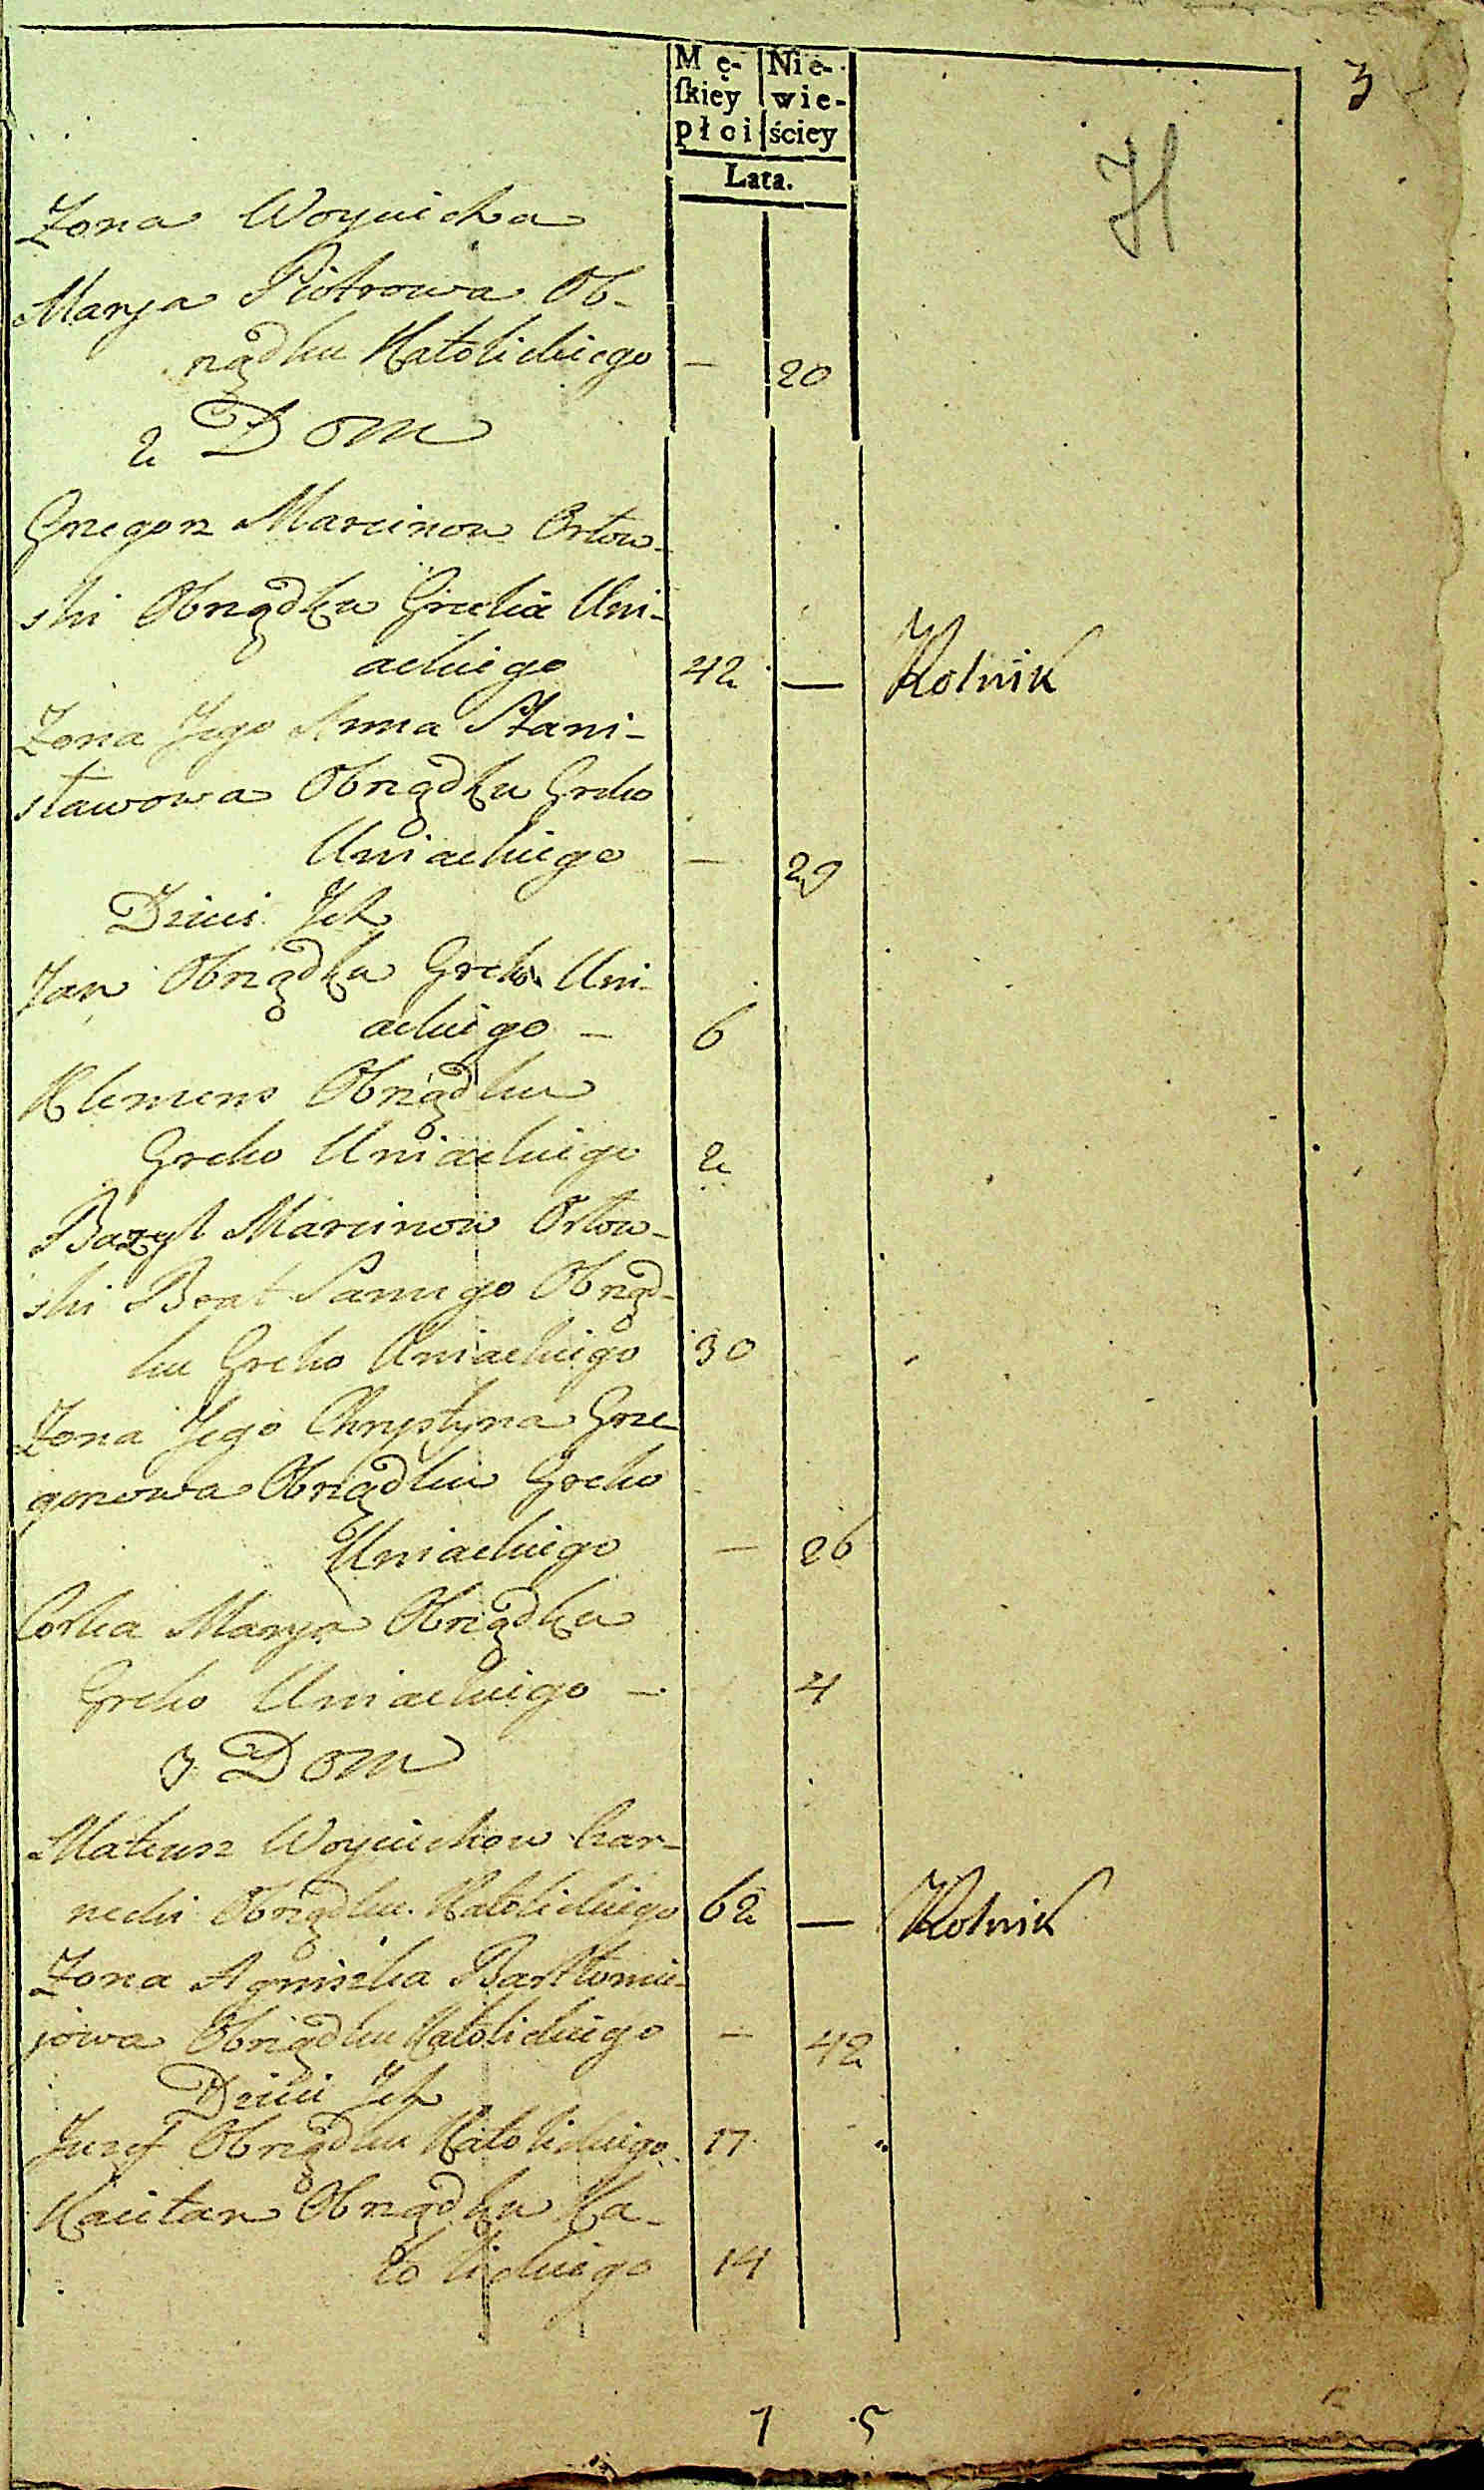 3
Mę- Nie-
ſkiey wie-
płci ściey
Lata.
H
Zona Woyciecha
Marja Piotrowa Ob-
rządku Katolickiego — 20
2 Dom
Gregorz Marcinow Orłow-
ski Obrządku Greko Uni-
ackiego 42 — Rolnik
Zona Jego Anna Stani-
sławowa Obrządku Greko
Uniackiego — 29
Dzieci Ich
Jan Obrządku Greko Uni-
ackiego — 6
Klemens Obrządku
Greko Uniackiego 2
Bazyl Marcinow Orłow-
ski Brat Samego Obrząd-
ku Greko Uniackiego 30
Zona Jego Chrystyna Grze-
gorzowa Obrządku Greko
Uniackiego — 26
Corka Marja Obrządku
Greko Uniackiego — 4
3 Dom
Mateusz Woyciechow Czar-
necki Obrządku Katolickiego 62 — Rolnik
Zona Agniszka Bartłomie-
jowa Obrządku Katolickiego — 42
Dzieci Ich
Juzef Obrządku Katolickiego 17
Kaietan Obrządku Ka-
tolickiego 14
7 5